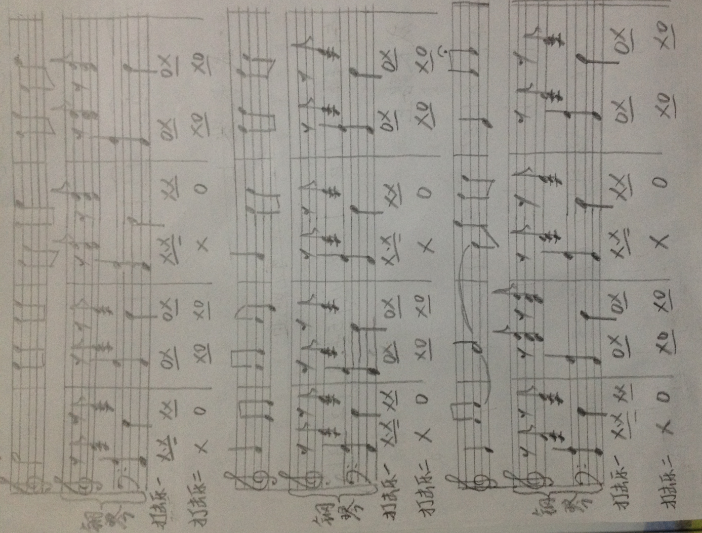 钢琴
打击乐一 X.X XX 0X 0X X.X XX 0X 0X
打击乐二 X 0 X0 X0 X 0 X0 X0
钢琴
打击乐一 X.X XX 0X 0X X.X XX 0X 0X
打击乐二 X 0 X0 X0 X 0 X0 X0
钢琴
打击乐一 X.X XX 0X 0X X.X XX 0X 0X
打击乐二 X 0 X0 X0 X 0 X0 X0